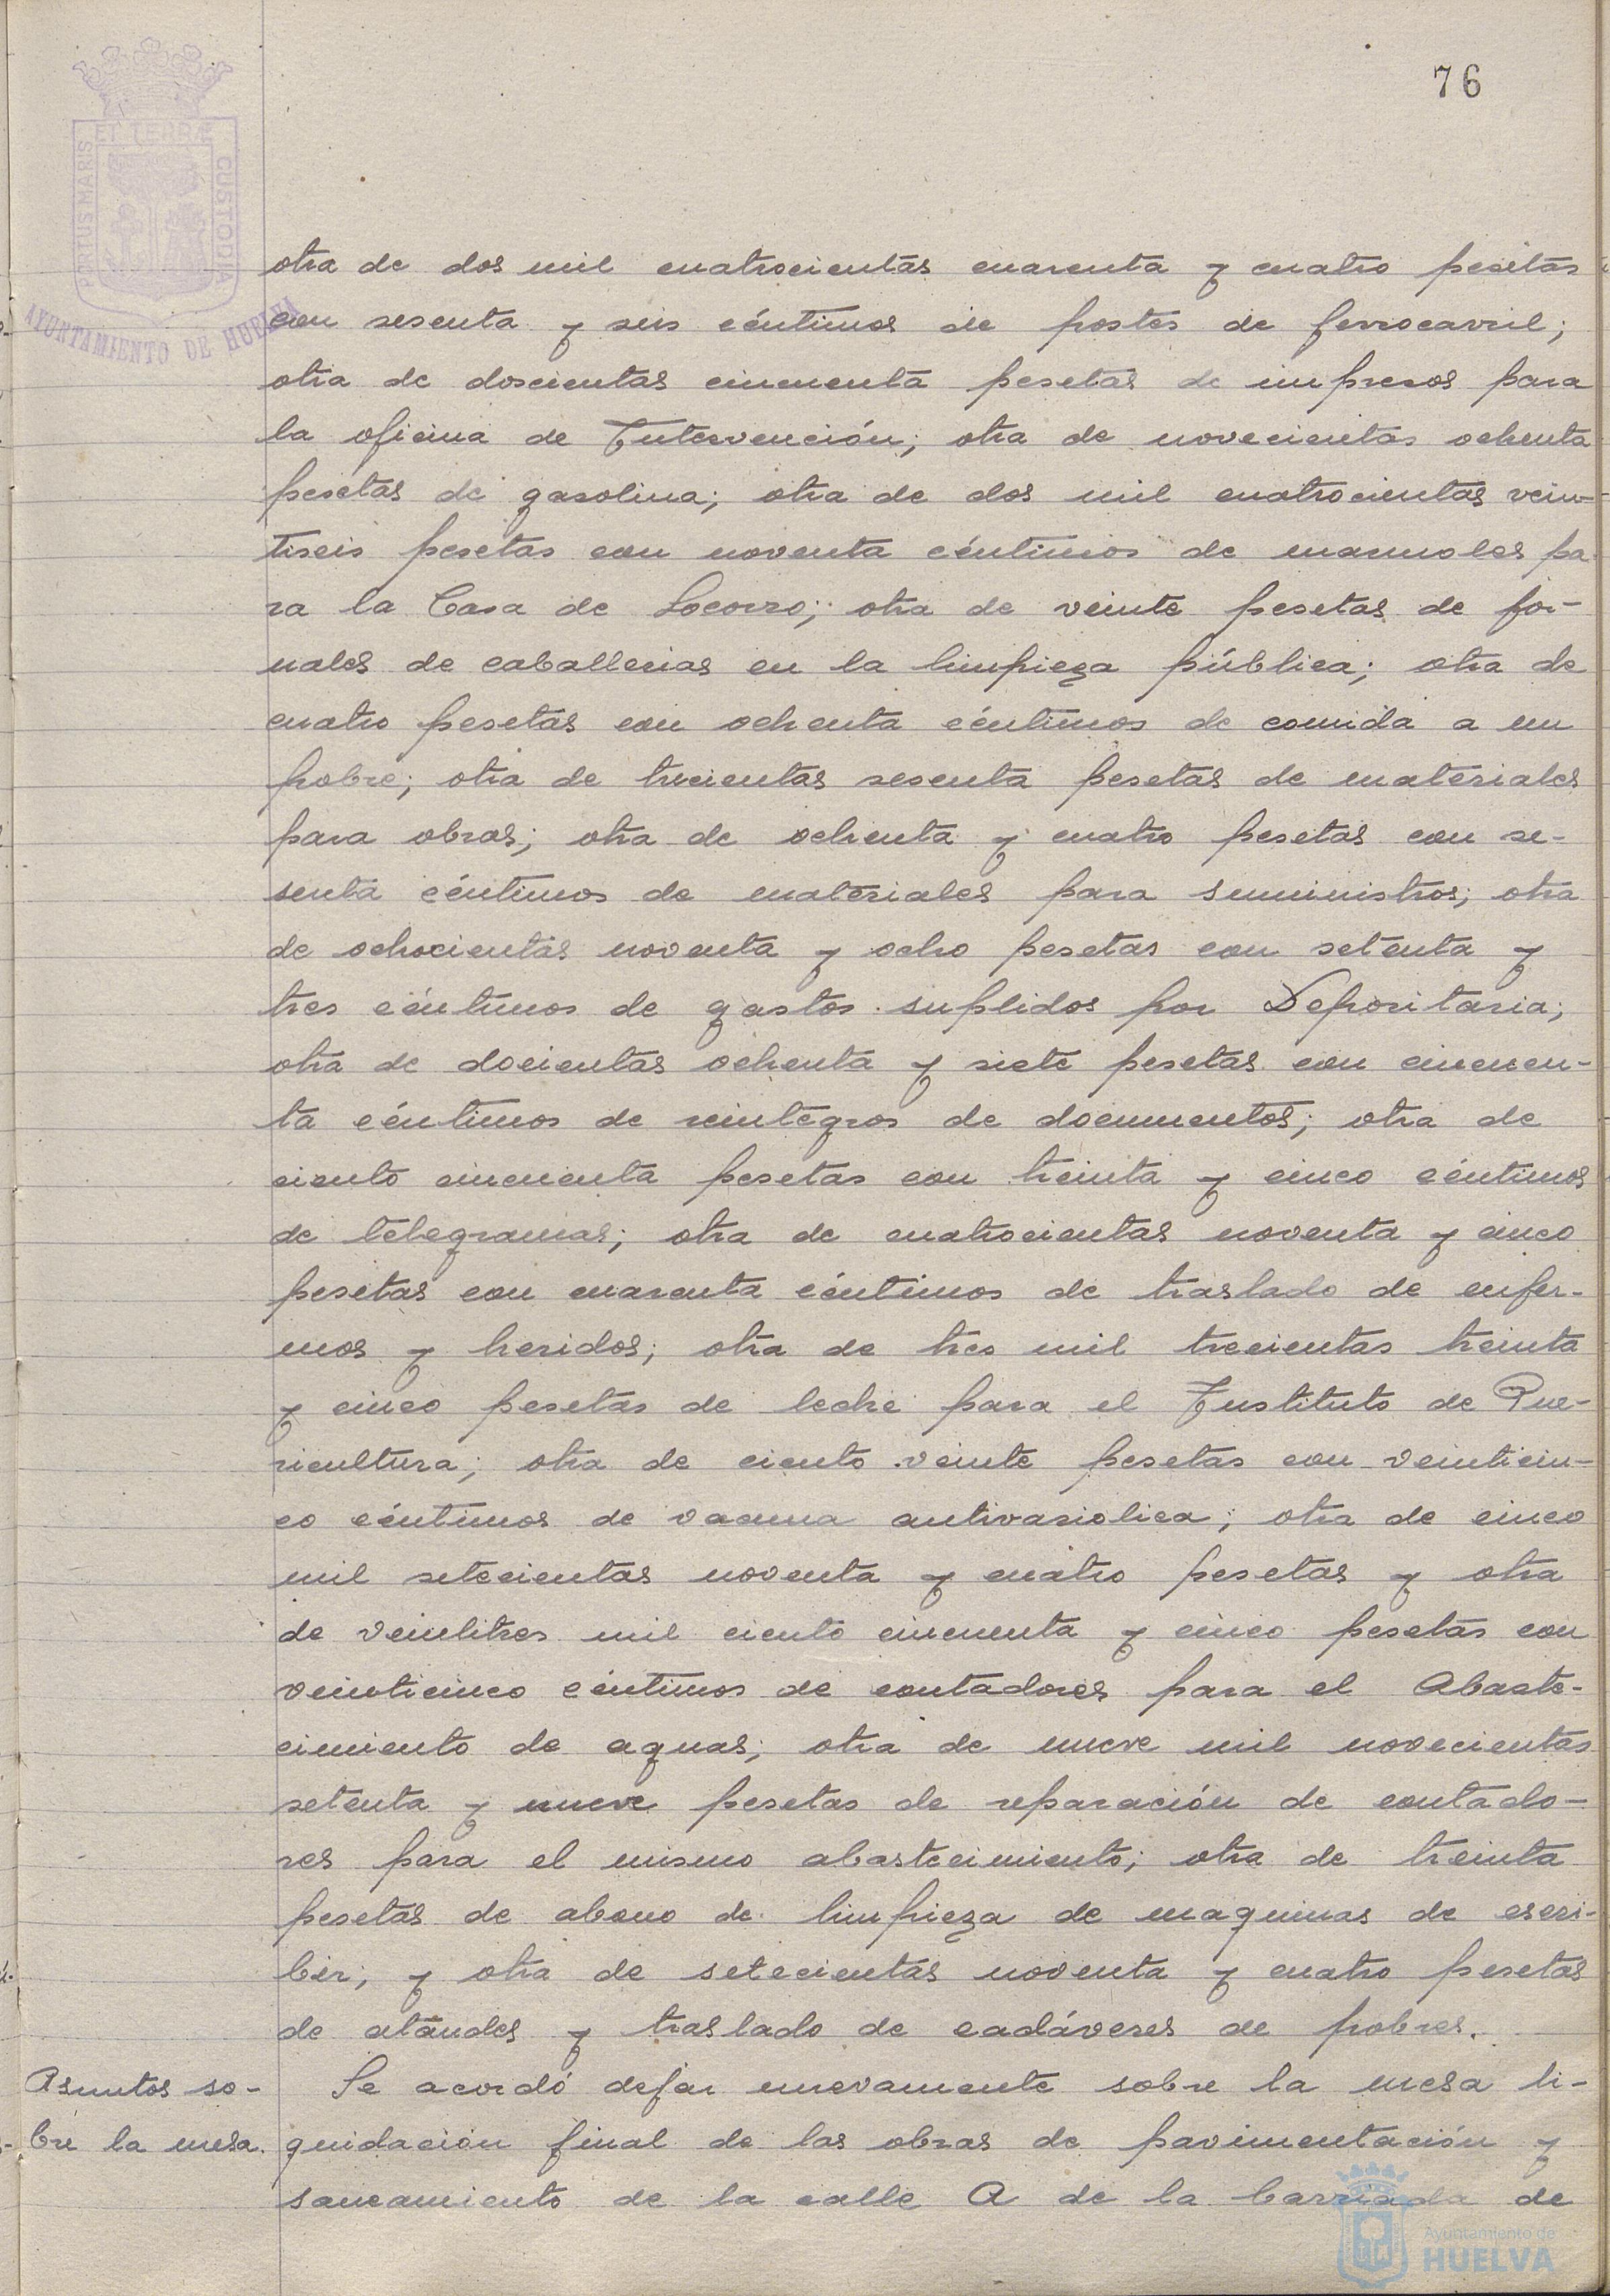 76
ET TERRÆ
PORTUS MARIS
CUSTODIA
AYUNTAMIENTO DE HUELVA
otra de dos mil cuatrocientas cuarenta y cuatro pesetas
con sesenta y seis céntimos de postes de ferrocarril;
otra de doscientas cincuenta pesetas de impresos para
la oficina de Intervención; otra de novecientas ochenta
pesetas de gasolina; otra de dos mil cuatrocientas vein-
tiseis pesetas con noventa céntimos de marmoles pa-
ra la Casa de Socorro; otra de veinte pesetas de jor-
nales de caballerias en la limpieza pública; otra de
cuatro pesetas con ochenta céntimos de comida a un
pobre; otra de trecientas sesenta pesetas de materiales
para obras; otra de ochenta y cuatro pesetas con se-
senta céntimos de materiales para suministros; otra
de ochocientas noventa y ocho pesetas con setenta y
tres céntimos de gastos suplidos por Depositaria;
otra de docientas ochenta y siete pesetas con cincuen-
ta céntimos de reintegros de documentos; otra de
ciento cincuenta pesetas con treinta y cinco céntimos
de telegramas; otra de cuatrocientas noventa y cinco
pesetas con cuarenta céntimos de traslado de enfer-
mos y heridos; otra de tres mil trecientas treinta
y cinco pesetas de leche para el Instituto de Pue-
ricultura; otra de ciento veinte pesetas con veinticin-
co céntimos de vacuna antivariolica; otra de cinco
mil setecientas noventa y cuatro pesetas y otra
de veintitres mil ciento cincuenta y cinco pesetas con
veinticinco céntimos de contadores para el Abaste-
cimiento de aguas; otra de nueve mil novecientas
setenta y nueve pesetas de reparación de contado-
res para el mismo abastecimiento; otra de treinta
pesetas de abono de limpieza de maquinas de escri-
bir; y otra de setecientas noventa y cuatro pesetas
de ataudes y traslado de cadáveres de pobres.
Asuntos so- Se acordó dejar nuevamente sobre la mesa li-
bre la mesa. quidación final de las obras de pavimentación y
saneamiento de la calle A de la barriada de
Ayuntamiento de
HUELVA